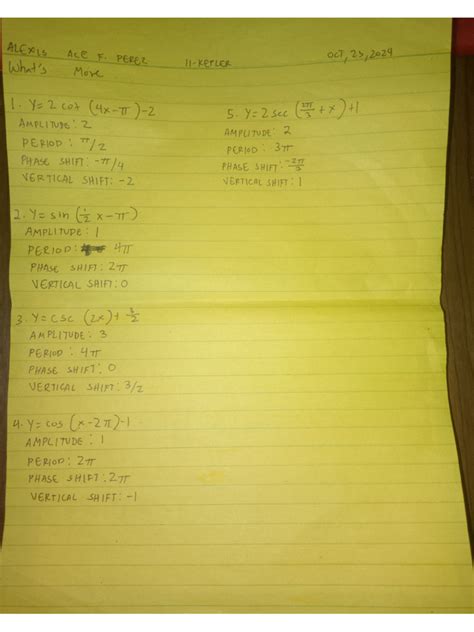 ALEXIS ACE F. PEREZ 11-KEPLER OCT, 23, 2024
What's More
1. Y = 2 cot (4x-π)-2
AMPLITUDE: 2
PERIOD: π/2
PHASE SHIFT: -π/4
VERTICAL SHIFT: -2
2. Y = sin (1/2 x - π)
AMPLITUDE: 1
PERIOD: 4π
PHASE SHIFT: 2π
VERTICAL SHIFT: 0
3. Y = csc (2x) + 3/2
AMPLITUDE: 3
PERIOD: 4π
PHASE SHIFT: 0
VERTICAL SHIFT: 3/2
4. Y = cos (x-2π)-1
AMPLITUDE: 1
PERIOD: 2π
PHASE SHIFT: 2π
VERTICAL SHIFT: -1
5. Y = 2 sec (2π/3 + x) + 1
AMPLITUDE: 2
PERIOD: 3π
PHASE SHIFT: -2π/3
VERTICAL SHIFT: 1